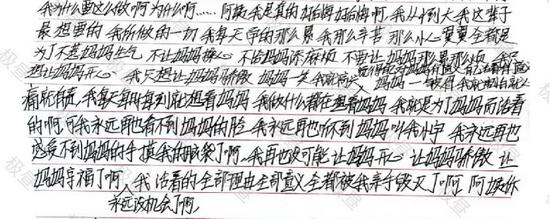 我为什么要这么做啊为什么啊……阿姨我是真的好后悔好后悔啊,我从小到大我这辈子
最想要的我所做的一切我每天学的那么累我那么辛苦那么小心翼翼全都是
为了不惹妈妈生气不让妈妈操心不给妈妈添麻烦不要让妈妈那么累那么烦
想让妈妈开心 我只想让妈妈骄傲 妈妈一
痛就自责,我每天每时每刻就想着妈妈 我做什么都在想着妈妈 我就是为了妈妈而活着
的啊 可我永远再也看不到妈妈的脸 我永远再也听不到妈妈叫我小宇 我永远再也
感受不到妈妈的手摸我的脑袋了啊,我再也没可能让妈妈开心 让妈妈骄傲 让
妈妈享福了啊,我活着的全部理由全部意义全都被我亲手毁灭了啊,阿姨你
永远没机会了啊,
极昼